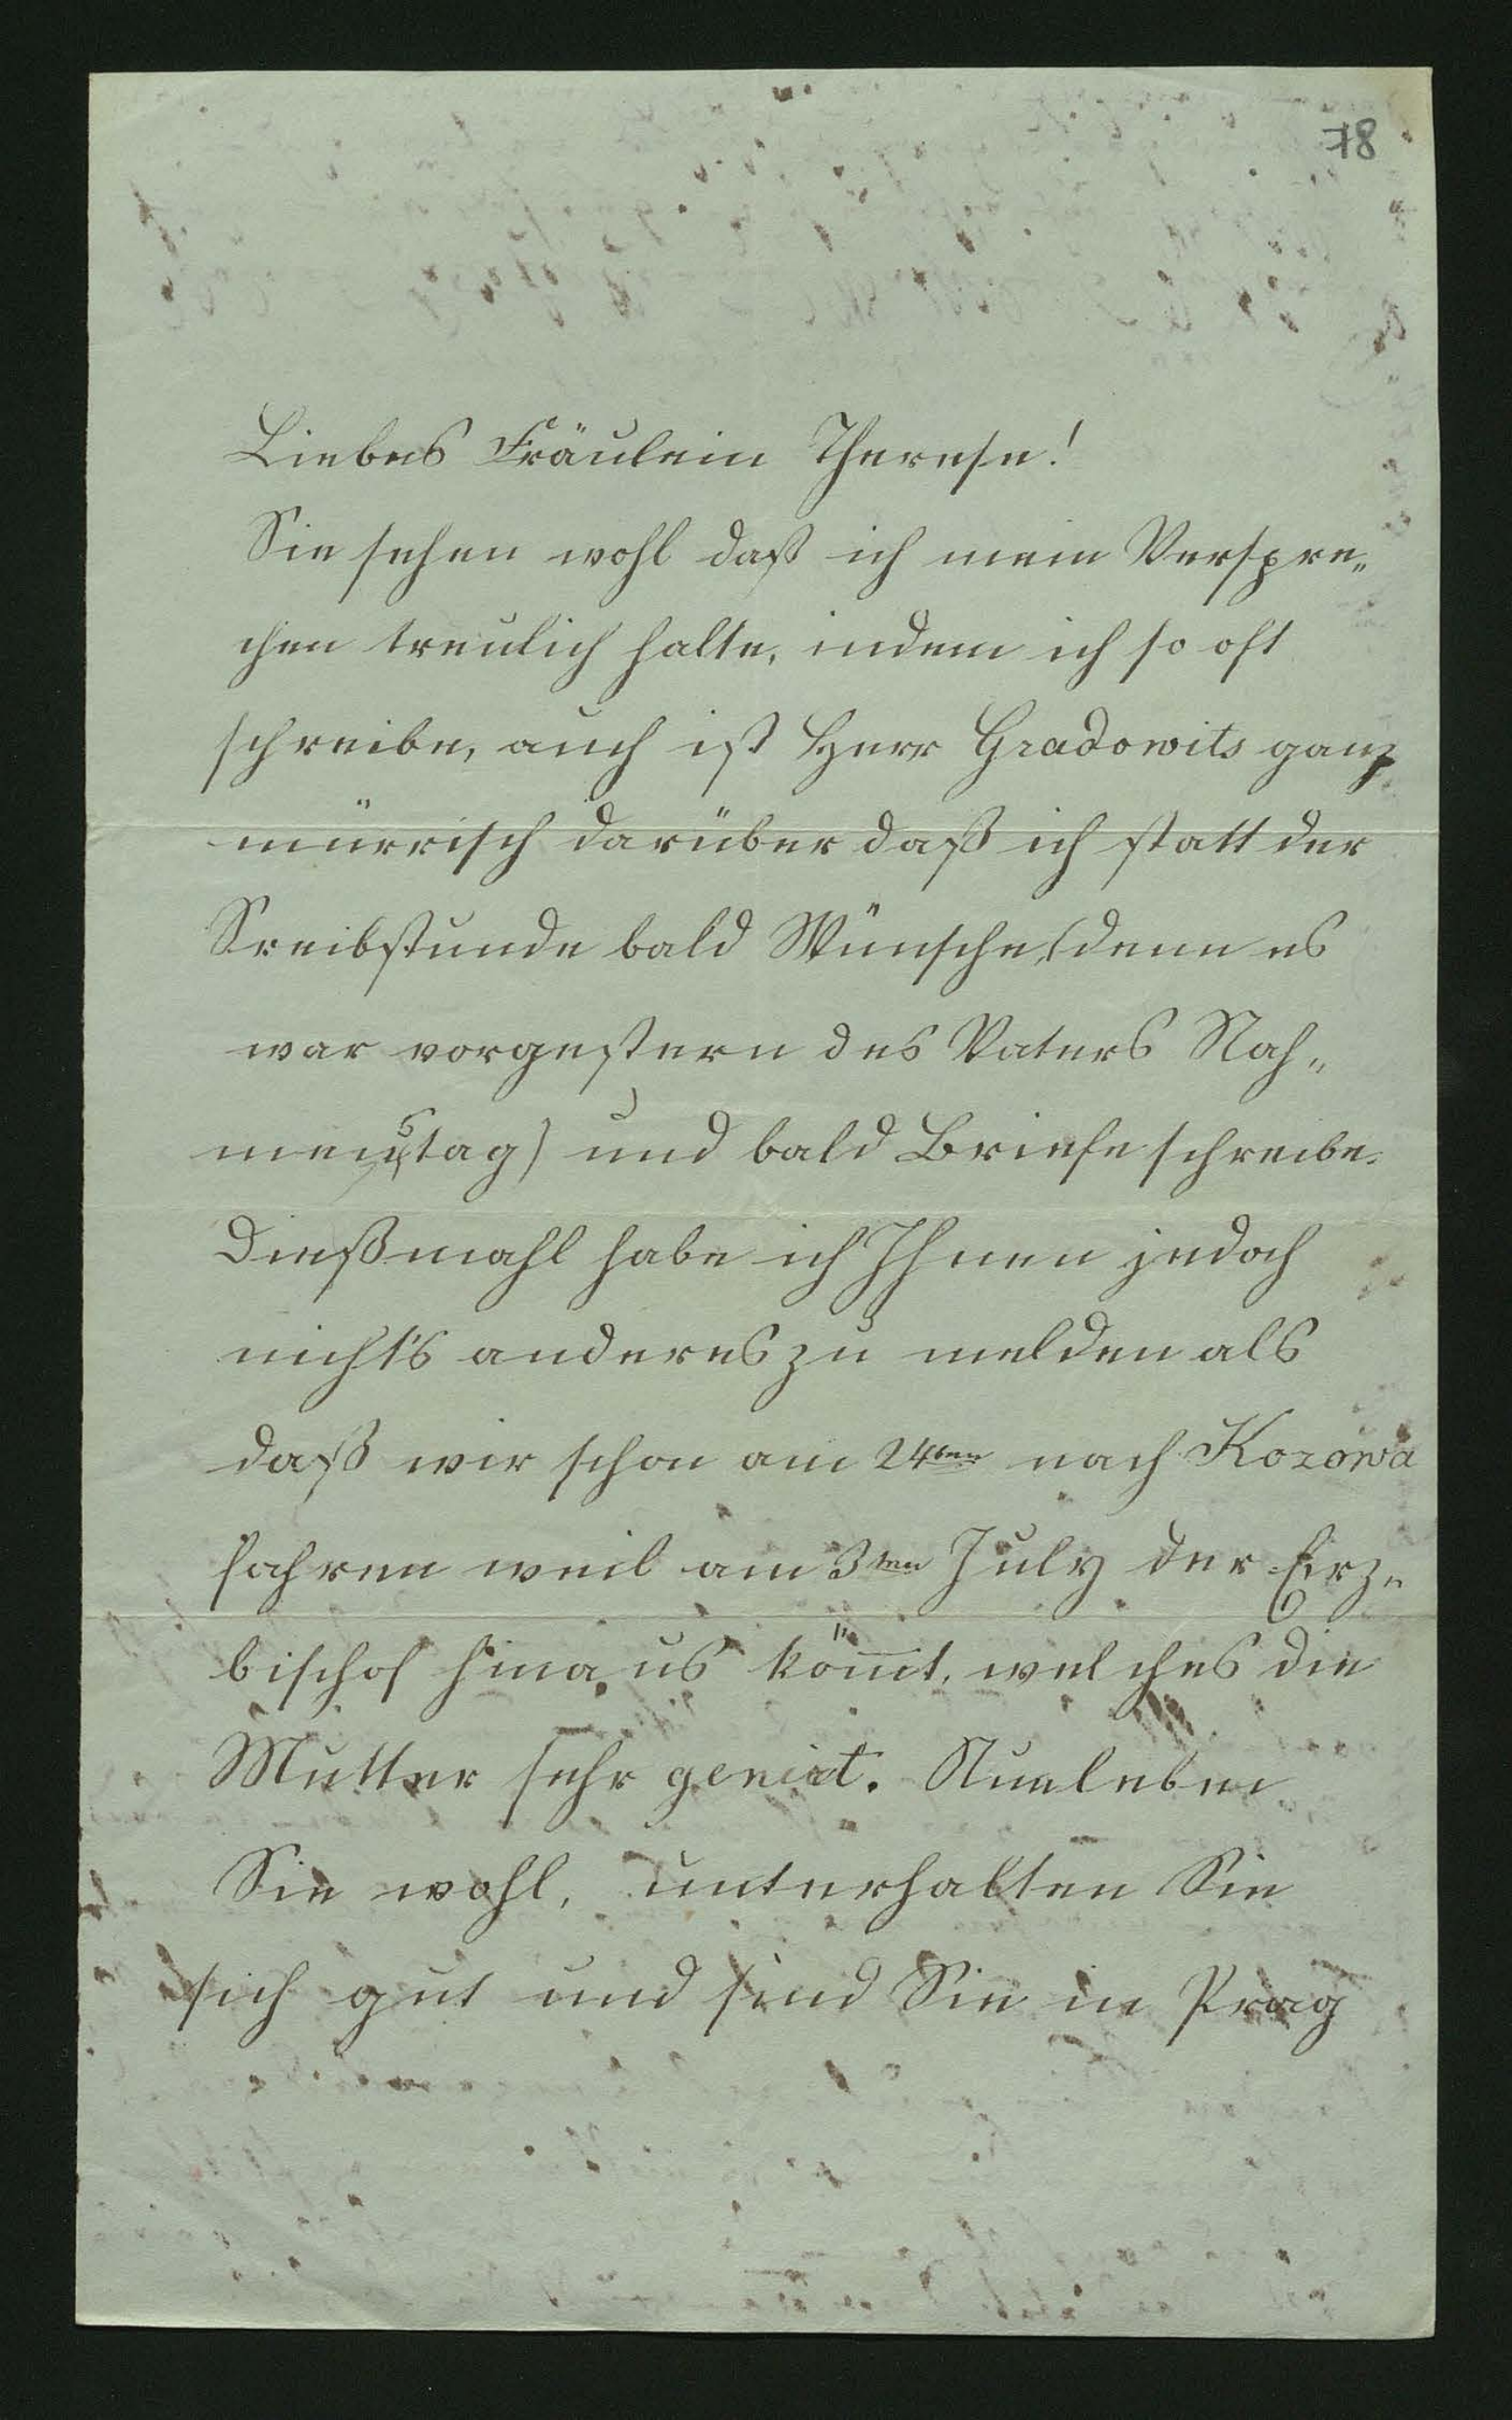 78
Liebes Fräulein Therese!
Sie sehen wohl daß ich mein Verspre„
chen treulich halte, indem ich so oft
schreibe, auch ist Herr Gradowits ganz
mürrisch darüber daß ich statt der
Sreibstunde bald Wünsche, (denn es
war vorgestern des Vaters Nah„
menstag) und bald Briefe schreibe.
Dießmahl habe ich Ihnen jedoch
nichts anderes zu melden als
daß wir schon am 24ten nach Kozowa
fahren weil am 3ten July der Erz„
bischof hinaus kömt, welches die
Mutter sehr genirt. Nun leben
Sie wohl, unterhalten Sie
sich gut und sind Sie in Prag